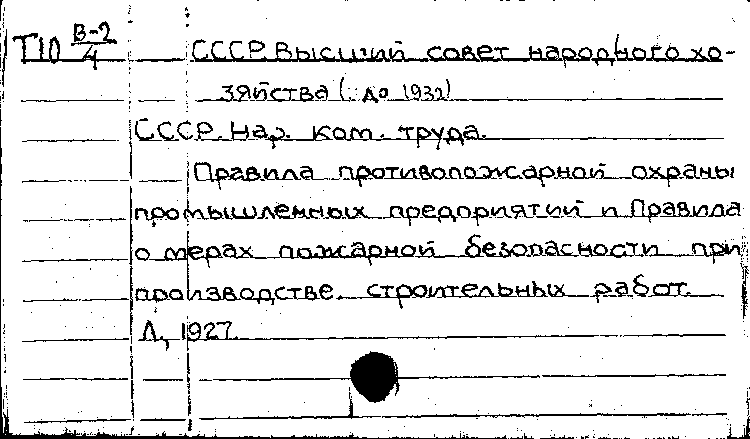 Т10 В-2/4 СССР. Высший совет народного хо-
зяйства (: до 1932)
СССР. Нар. ком. труда.
Правила противопожарной охраны
промышленных предприятий и Правила
о мерах пожарной безопасности при
производстве строительных работ.
Л, 1927.